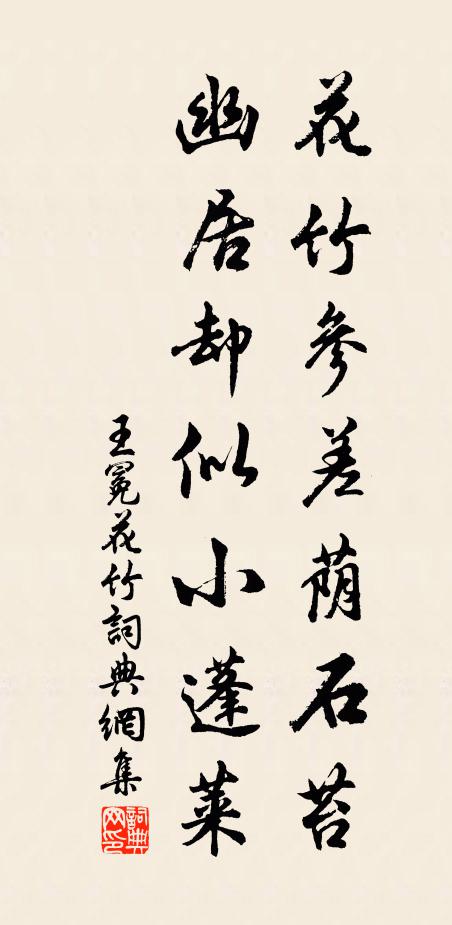 花竹參差蔭石苔
幽居却似小蓬萊
王冕花竹詞典網集
詞典網印